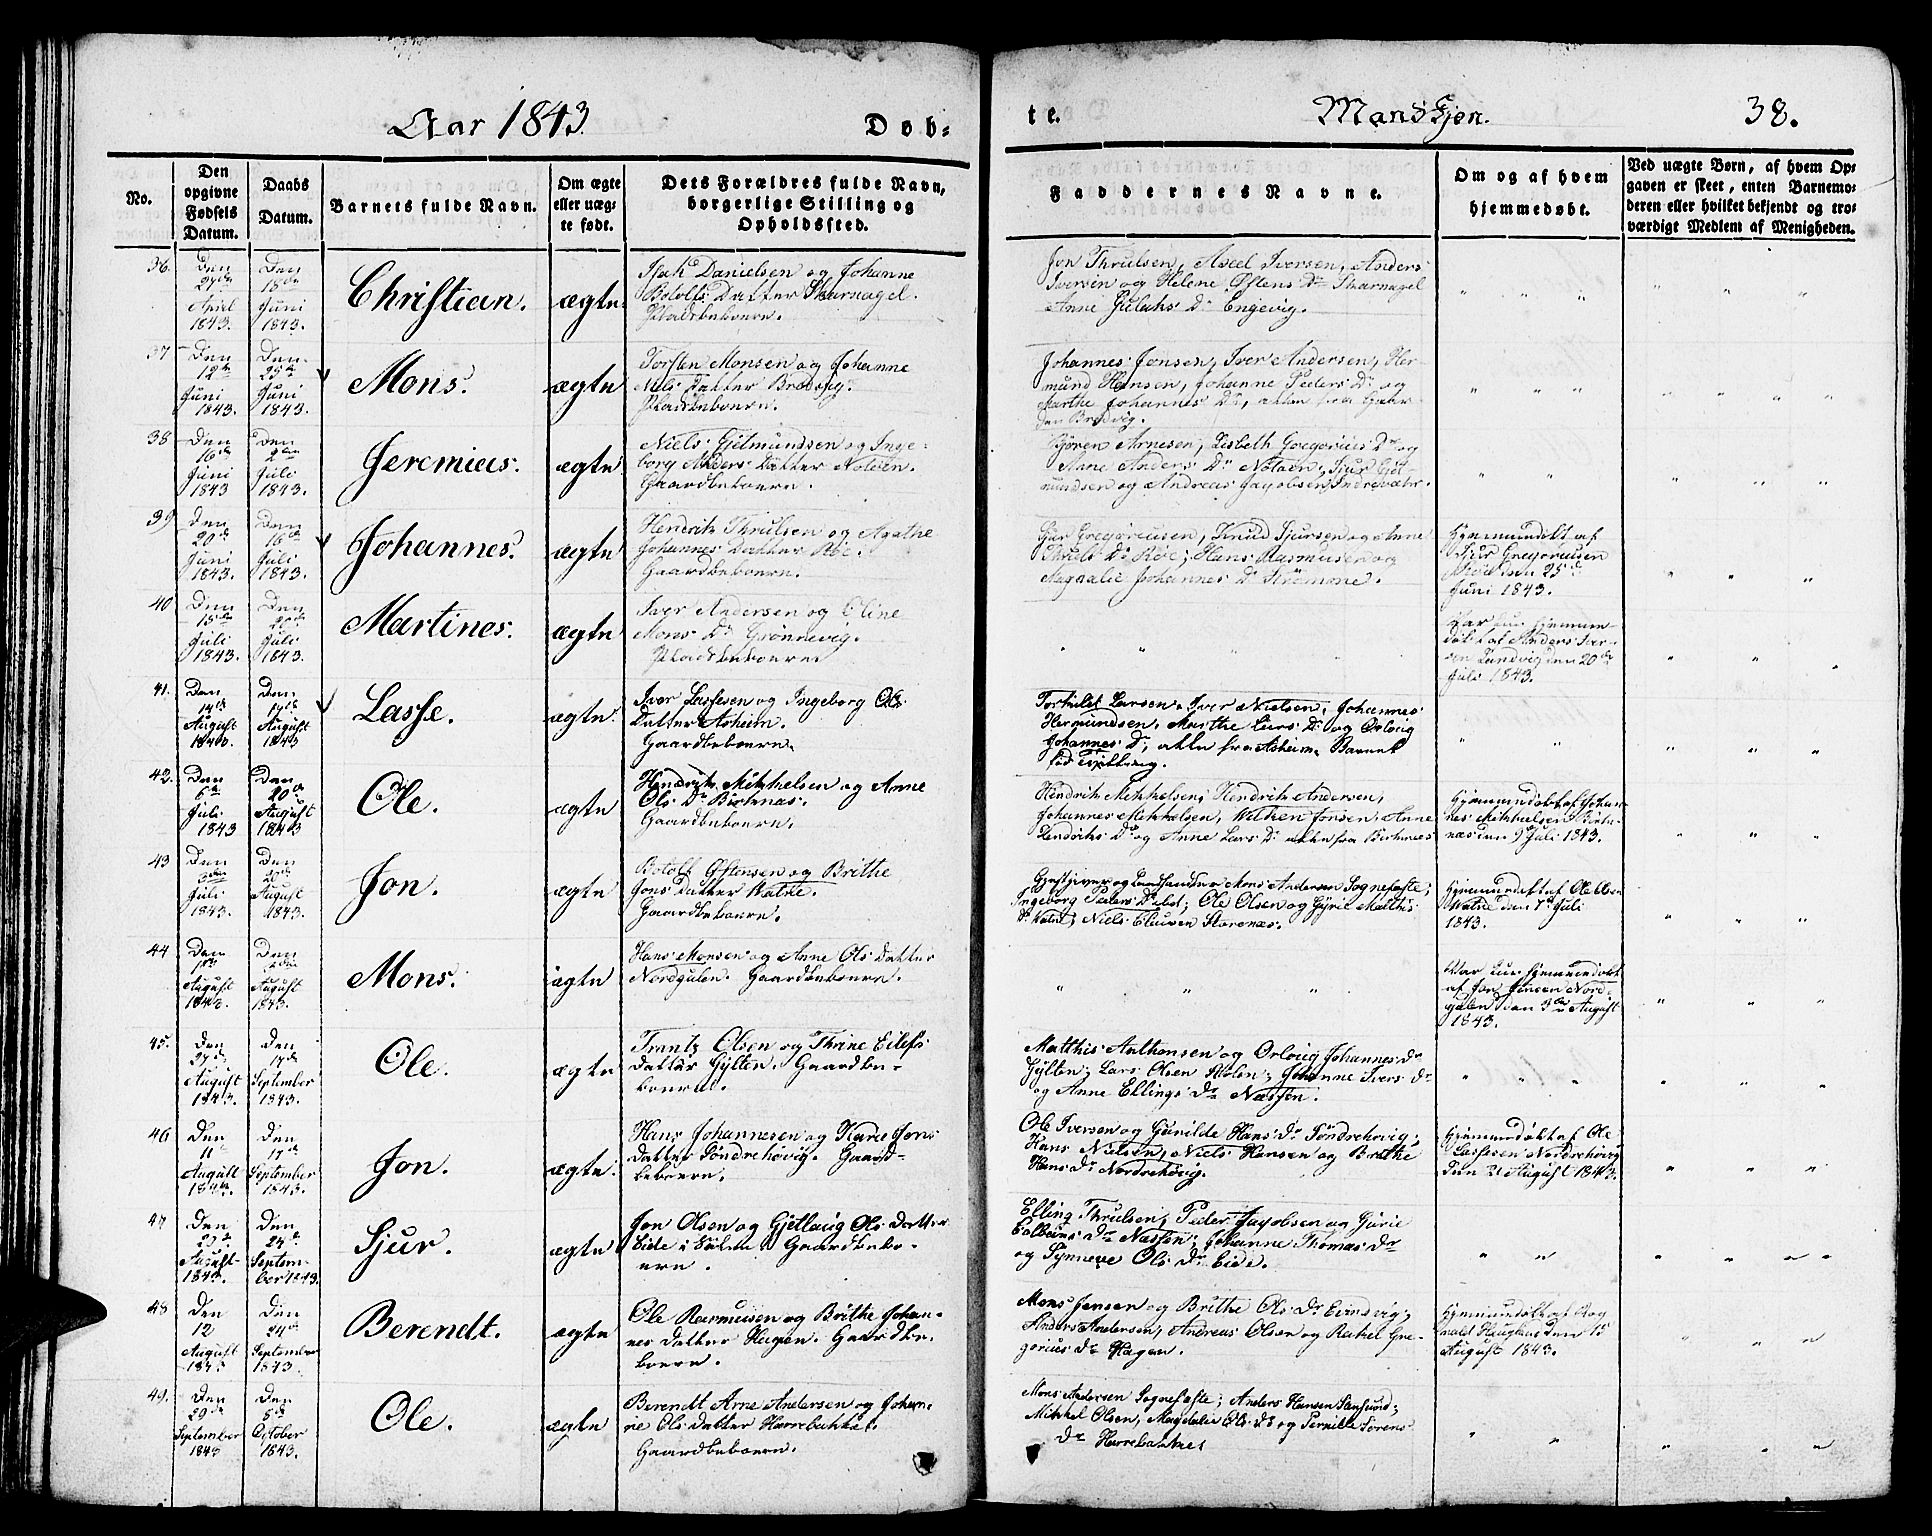 Aar 1843.
Døb-
te.
Mandkjøn.
38.
No.
Den opgivne Fødsels Datum.
Daabs Datum.
Barnets fulde Navn.
Om ægte eller uægte født.
Dets Forældres fulde Navn, borgerlige Stilling og Opholdssted.
Faddernes Navne.
Om og af hvem hjemmedøbt.
Ved uægte Børn, af hvem Op-
gaven er skeet, enten Barnemo-
deren eller hvilket bekjendt og tro-
værdigt Medlem af Menigheden.
36.
Den 27de April 1843.
Den 18de Juni 1843.
Christian.
ægte.
Isak Danielsen og Johanne
Botolfs Datter Skarnagel.
Pladsbeboere.
Jon Thrulsen, Axel Iversen, Anders
Iversen og Helene Østens Dr Skarnagel
Anne Gulaks Dr Engevig.
37
Den 12te Juni 1843.
Den 25de Juni 1843.
Mons.
ægte
Torsten Monsen og Johanne
Niels Datter Brosvig.
Pladsbeboere.
Johannes Jonsen, Iver Andersen, Her-
mund Hansen, Johanne Peders Dr og
Marthe Johannes Dr, alle fra Gaar-
den Brosvig.
38
Den 16de Juni 1843
Den 2den Juli 1843.
Jeremias.
ægte
Niels Gjetmundsen og Inge-
borg Anders Datter Notøen.
Gaardbeboere.
Bjøren Arnesen, Lisbeth Gregorius Dr og
Anne Anders Dr Notøen; Sjur Gjet-
mundsen og Andreas Jacobsen Indrevær.
39
Den 20de Juni 1843
Den 16de Juli 1843.
Johannes.
ægte
Hendrik Thrulsen og Agathe
Johannes Datter Røe.
Gaardbeboere.
Sjur Gregoriusen, Knud Sjursen og Anne
Thruls Dr Røe; Hans Rasmusen og
Magdalie Johannes Dr Strømme.
Hjemmedøbt af
Sjur Gregoriusen
Røe den 25de
Juni 1843.
40
Den 15de Juli 1843.
Den 20de Juli 1843.
Martines.
ægte
Iver Andersen og Oline
Mons Dr Grønnevig.
Pladsbeboere
Har kun hjemme-
døbt af Anders Iver-
sen Sandvig den 20de
Juli 1843.
41.
Den 14de August 1843.
Den 17de August 1843
Lasse.
ægte.
Iver Lassesen og Ingeborg Ols
Datter Asheim.
Gaardbeboere.
Torkild Larsen, Iver Nielsen, Johannes
Hermundsen, Marthe Lars Dr og Orloug
Johannes Dr, alle fra Asheim. Barnet
fød Tvilling.
42.
Den 6te Juli 1843
Den 20de August 1843
Ole.
ægte
Hendrik Mikkelsen og Anne
Ols Dr Birknæs.
Gaardbeboere.
Hendrik Mikkelsen, Hendrik Andersen,
Johannes Mikkelsen, Willken Jonsen, Anne
Hendriks Dr og Anne Lars Dr alle fra Birknæs
Hjemmedøbt af Johan-
nes Mikkelsen Birk-
næs den 9 Juli 1843.
43
Den 3den Juli 1843.
Den 20de August 1843.
Jon.
ægte
Botolf Østensen og Brithe
Jons Datter Watne.
Gaardbeboere.
Gjestgiver og Landhandler Mons Andersen Sognefæste;
Ingeborg Peders Dr ibid; Ole Olsen og Gyrie Matthis
Dr Watne, Niels Ellinsen Storenæs.
Hjemmedøbt af Ole Olsen
Watne den 7de Juli
1843.
44
Den 1ste August 1843.
Den August 1843.
Mons.
ægte
Hans Monsen og Anne Ols Datter
Nordgulen. Gaardbeboere.
Var kun hjemmedøbt
af Jon Jensen Nord-
gulen den 3de August
1843.
45.
Den 27de August 1843.
Den 17de September 1843.
Ole.
ægte
Frantz Olsen og Thrine Eilefs
Datter Gylten. Gaardbe-
boere.
Matthis Anthonsen og Orloug Johannes Dr
Gylten; Lars Olsen Molen; Johanne Ivers Dr
og Anne Ellings Dr Næssøn.
46
Den 11 August 1843.
Den 17de September 1843.
Jon.
ægte.
Hans Johannesen og Karie Jons
Datter Søndrehovig. Gaard-
beboere.
Ole Iversen og Gunilde Hans Dr Søndrehovig;
Hans Nielsen, Niels Hansen og Brithe
Hans Dr Nordrehovig.
Hjemmedøbt af Ole
Lassesen Nordrehovig
den 21 August 1843.
47
Den 29de August 1843.
Den 24de September 1843.
Sjur.
ægte
Jon Olsen og Gjetloug Ols Datter
Eide i Gulen. Gaardbebo-
ere.
Elling Thrulsen, Peder Jacobsen og Gurie
Colbeins Dr Næssøn; Johanne Thomas Dr
og Synneve Ols Dr Eide.
48
Den 12 August 1843
Den 24de September 1843.
Berendt.
ægte
Ole Rasmusen og Brithe Johan-
nes Datter Hagen. Gaardbe-
boere.
Mons Jensen og Brithe Ols Dr Evindvig;
Anders Andersen, Andreas Olsen og Rakel Gre-
gorius Dr Hagen.
Hjemmedøbt af Rog-
nald Haugland den 15
August 1843.
49.
Den 29de September 1843
Den 8de October 1843.
Ole.
ægte
Berendt Arne Andersen og Johan-
ne Ols Datter Herrebakke.
Gaardbeboere.
Mons Andersen Sognefæste; Anders Hansen
Mikkel Olsen, Magdalie Ols Dr og Pernille Sørens
Dr Herrebakke